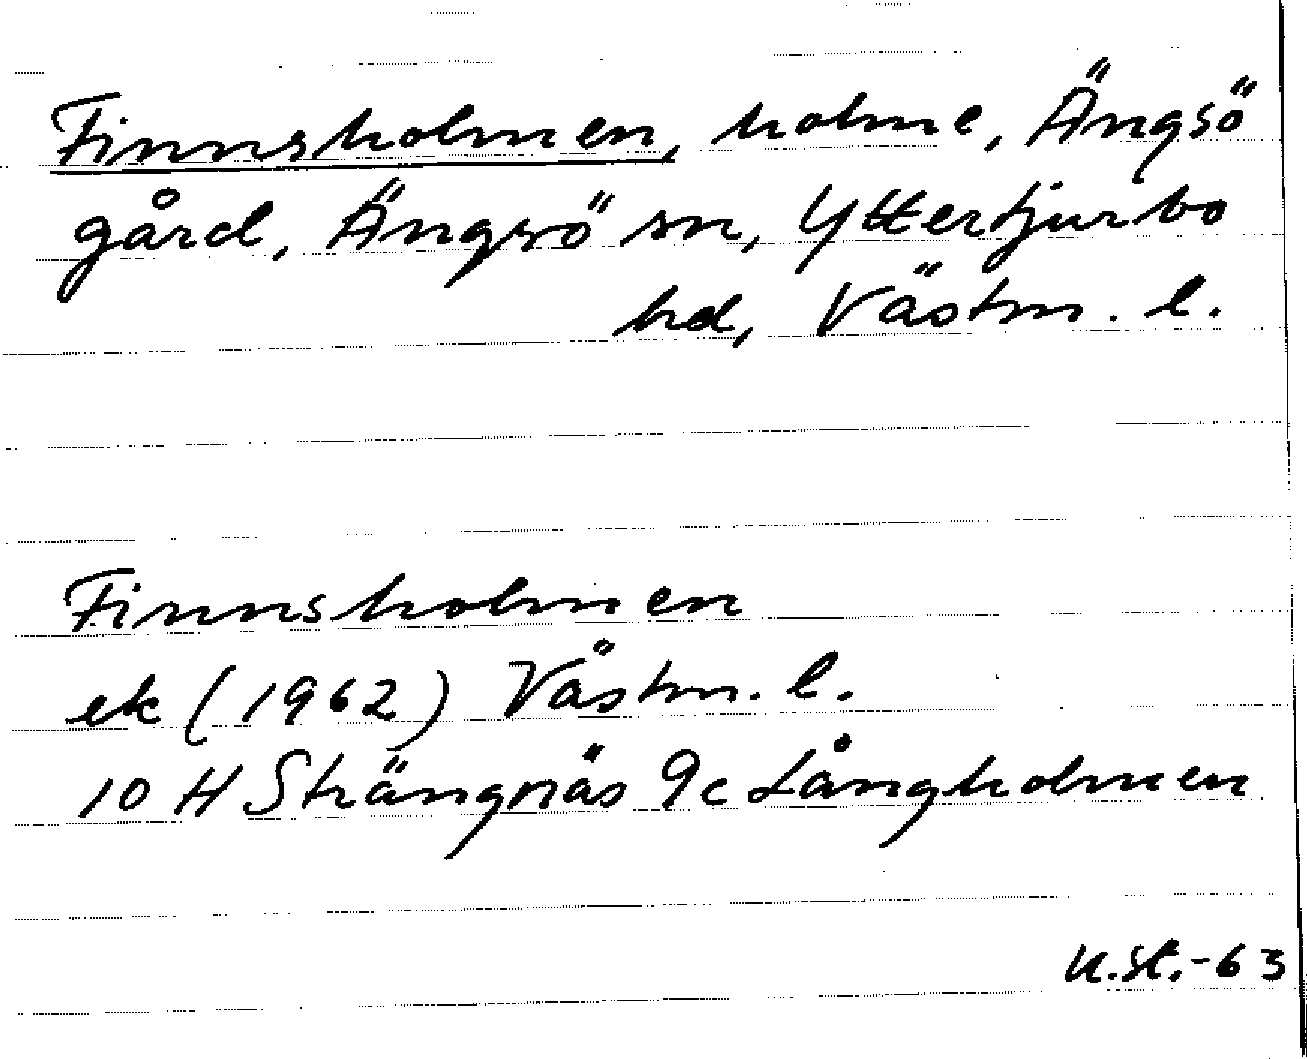 Finnsholmen, holme, Ängsö
gård, Ängsö sn, Yttertjurbo
hd, Västm. l.
Finnsholmen
ek (1962) Västm. l.
10 H Strängnäs 9c Långholmen
K.St.-63